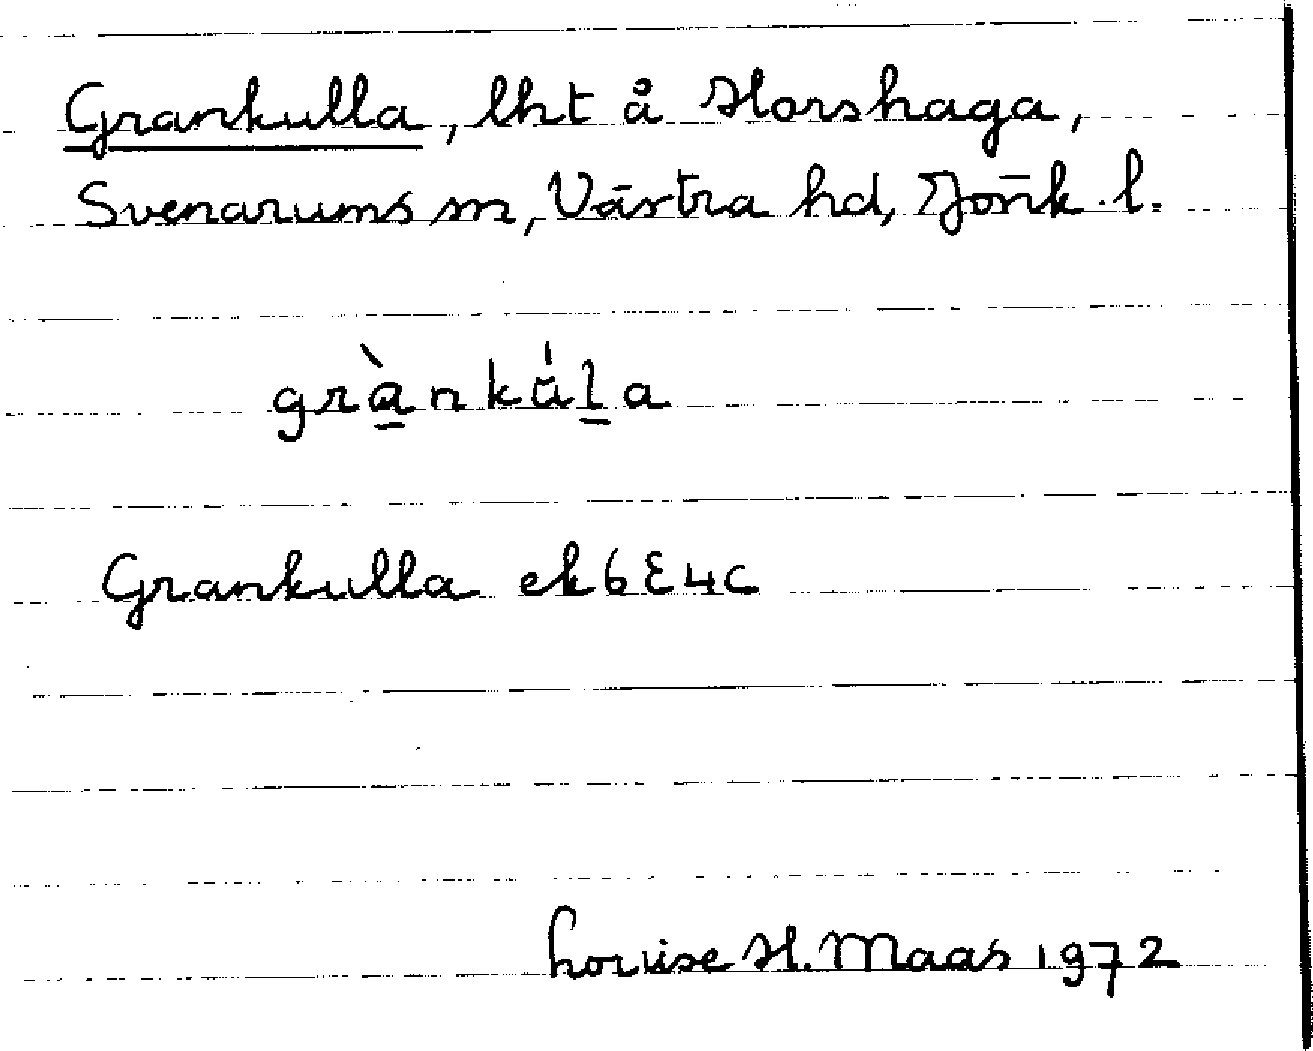 Grankulla, lht å Horshaga,
Svenarums sn, Västra hd, Jönk. l.
grànkúla
Grankulla ek 6E4c
Louise H. Maas 1972